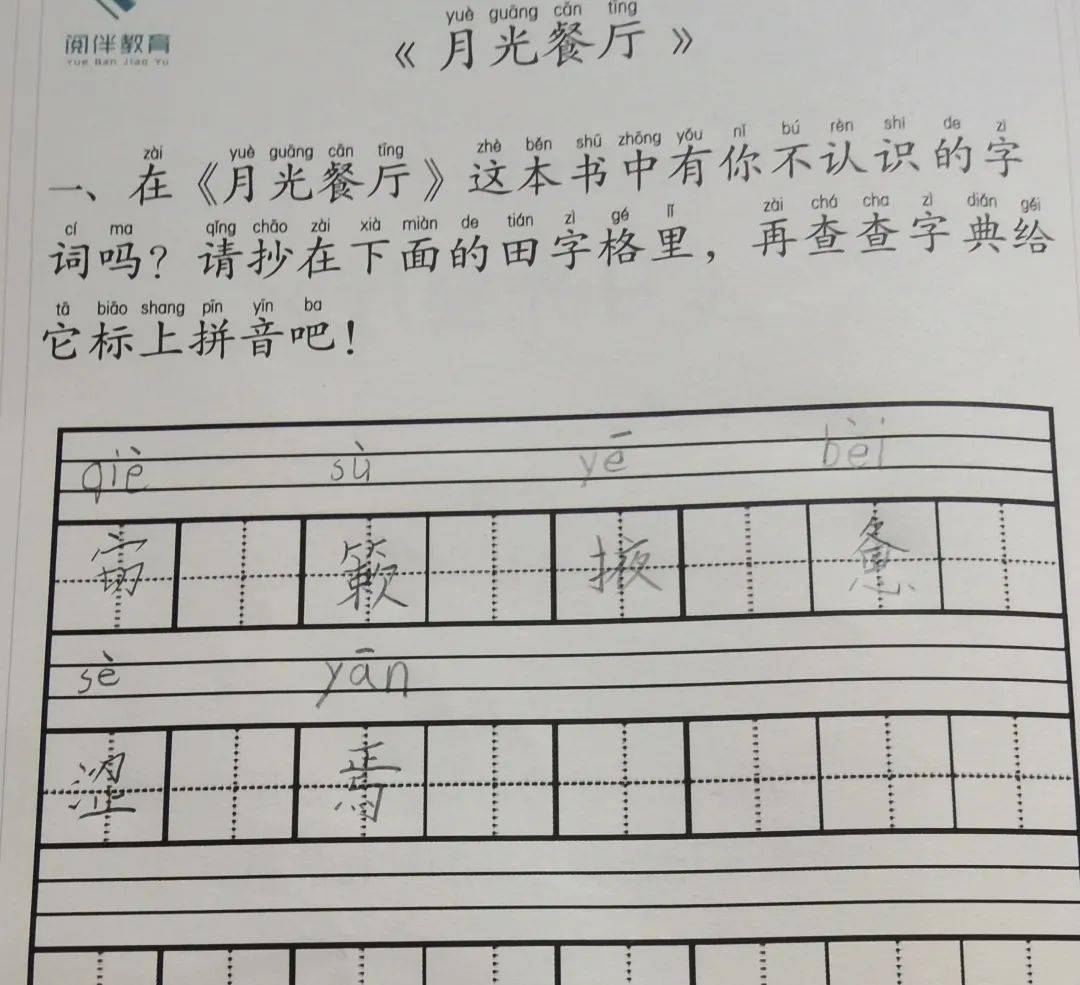 阅伴教育
Yue Ban Jiao Yu
yuè guāng cān tīng
《月光餐厅》
zài yuè guāng cān tīng zhè běn shū zhōng yǒu nǐ bú rèn shi de zì
一、在《月光餐厅》这本书中有你不认识的字
cí ma qǐng chāo zài xià miàn de tián zì gé lǐ zài chá cha zì diǎn gěi
词吗？请抄在下面的田字格里，再查查字典给
tā biāo shang pīn yīn ba
它标上拼音吧！
qiè sù yē bèi
窃 簌 掖 惫
sè yān
涩 焉